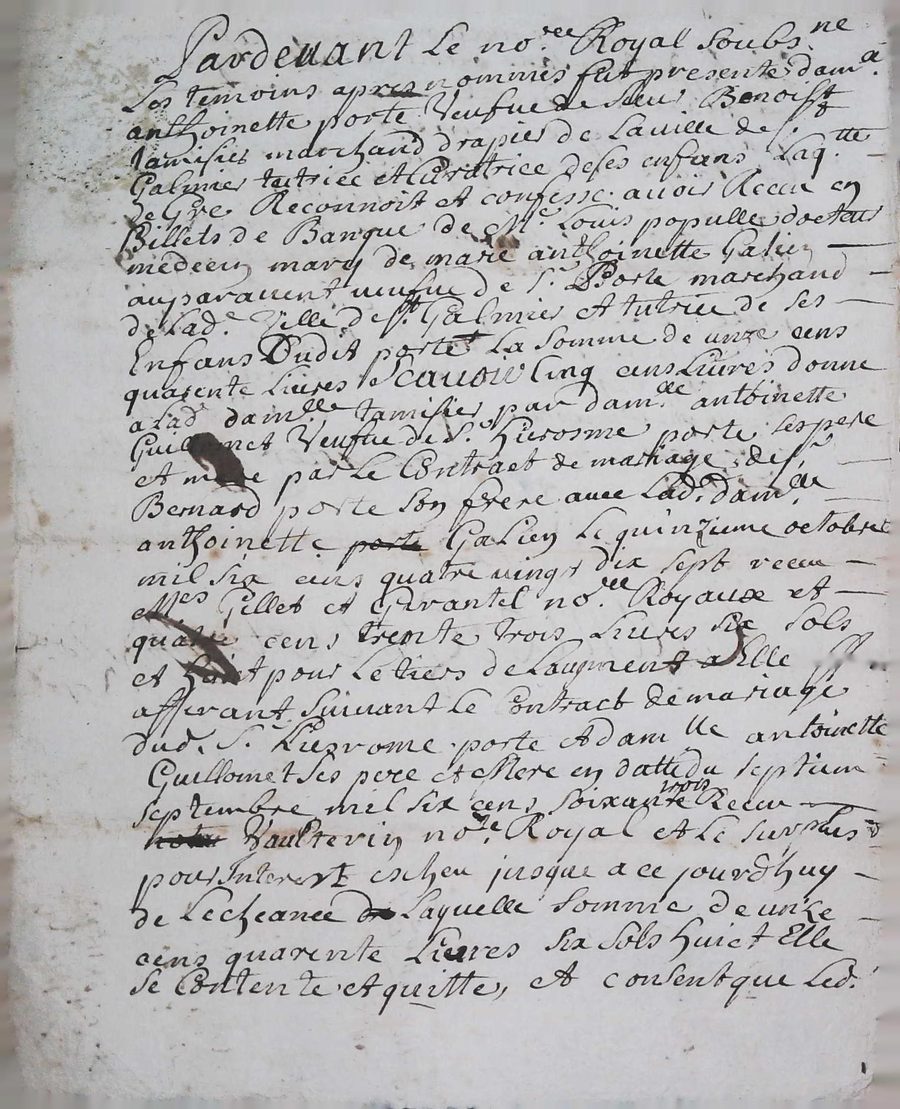 Pardevant Le no.re Royal Soubs.ne
Les temoins apres nommés fut presente dam.e
anthoinette porte Veufue de sieur Benoist
tamisier marchand drapier de La ville de S.t
Galmier tutriée et Curatrice de ses enfans Laq.tte
de Gré Reconnoit et confesse avoir Receu en
Billets de Banque de M.e Louis populle docteur
medecin mary de marie anthoinette Galien
auparavent veufue de S.r Porte marchand
de Lad.e Ville de S.t Galmier et tutrice de ses
Enfans Dudit porte La somme de unze cens
quarente Livres Scavoir Cinq cens Livres donné
a Lad. dam.lle tamisier par dam.lle antoinette
Guillomet Veufue de S.r hierosme porte ses pere
et mere par Le Contract de mariage de S.r
Bernard porte son frere avec Lad. dam.lle
anthoinette porte Galien Le quinzieme octobre
mil six cens quatre vingt dix sept receu
M.es Gillet et Girantel no.re Royaux et
quatre cens trente trois Livres six sols
et huit pour Le tiers de Laugment a Elle
afferant suivant Le Contract de mariage
dud. S.r hierome porte et dam.lle antoinette
Guillomet ses pere et Mere en datte du septiem
septembre mil six cens soixante trois Receu
Vaulterin no.re Royal et Le surplus
pour Interest escheu jusque a ce jourdhuy
de Lecheance de Laquelle somme de unze
cens quarente Livres six sols huict Elle
se Contente et quitte, et consent que Led.